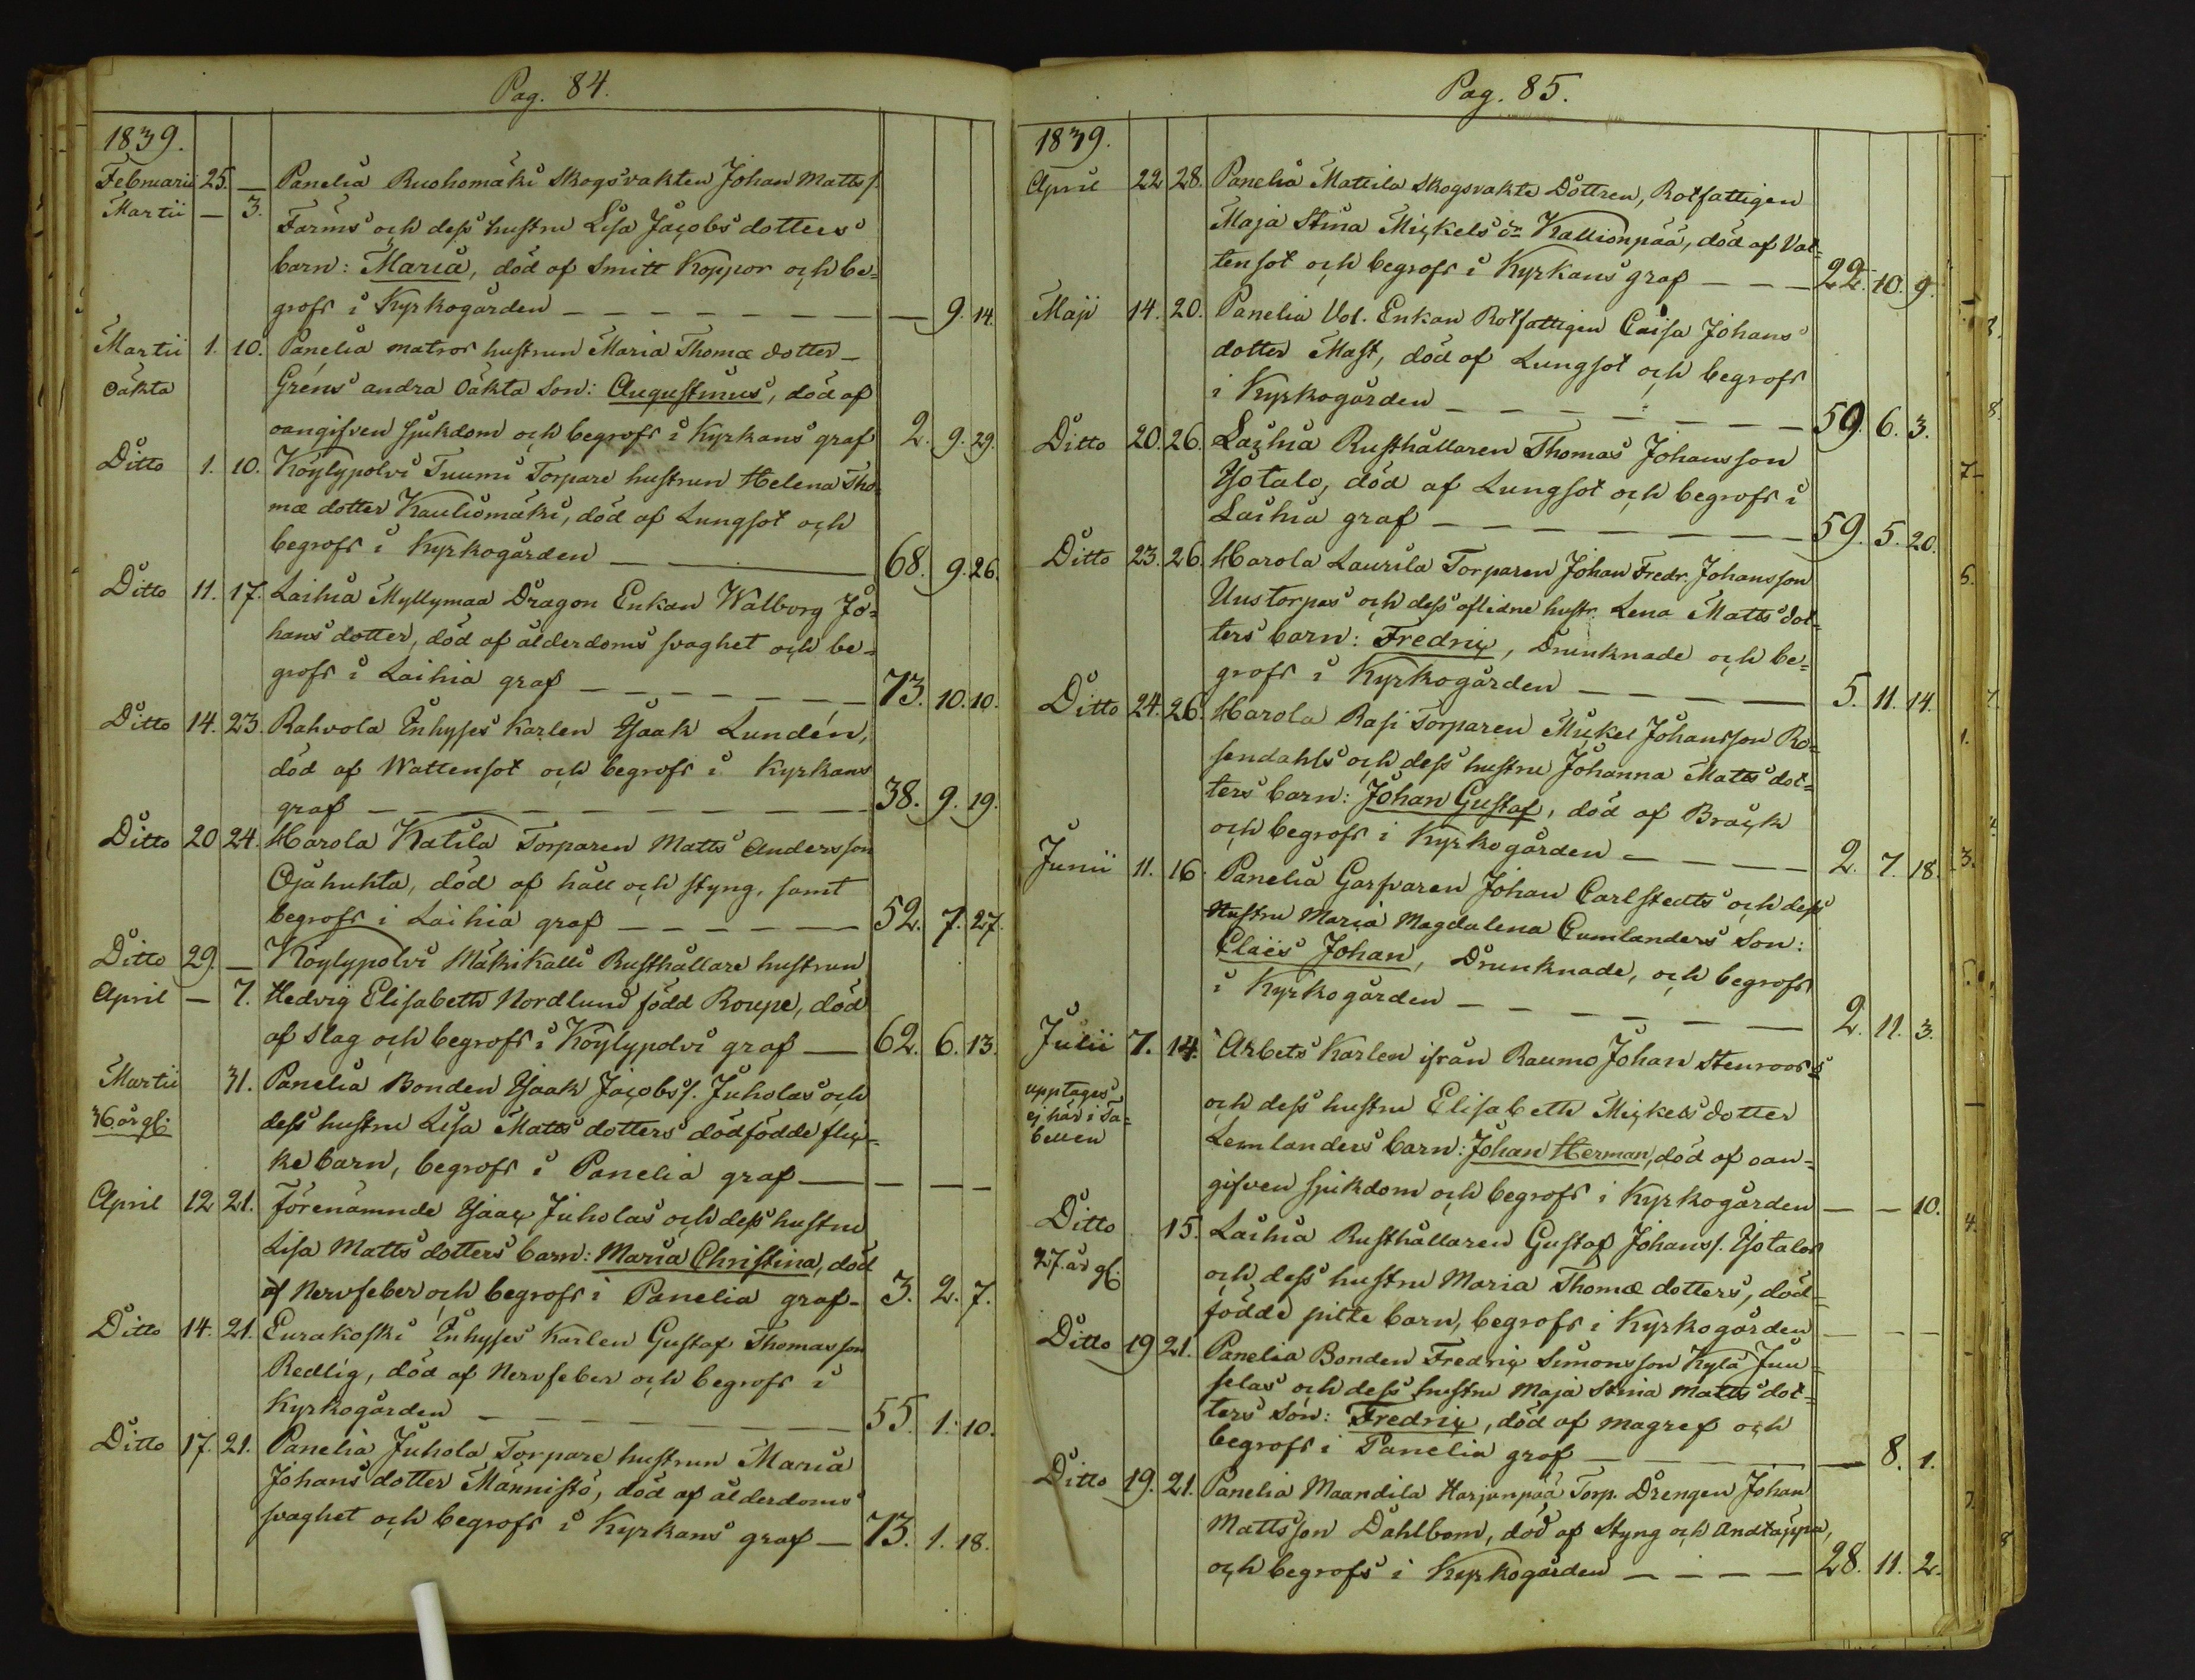 Pag. 84.
1839.
Februarii 25. — Panelia Ruohomäki Skogsvakten Johan Mattss.
Martii — 3. Farms och dess hustru Lisa Jacobs dotters
barn: Maria, död af Smitt Koppor och be=
grofs i Kyrkogården — 9. 14.
Martii 1. 10. Panelia matros hustrun Maria Thomæ dotter
oäkta Gréns andra Oäkta Son: Augustinus, död af
oangifven sjukdom och begrofs i Kyrkans graf 2. 9. 29.
Ditto 1. 10. Köylypolvi Tuumi Torpare hustrun Helena Tho=
mæ dotter Kauliomäki, död af Lungsot och
begrofs i Kyrkogården 68. 9. 26.
Ditto 11. 17. Laihia Myllymaa Dragon Enkan Walborg Jo=
hans dotter, död af ålderdoms svaghet och be=
grofs i Laihia graf 73. 10. 10.
Ditto 14. 23. Rahvola Inhyses Karlen Isaak Lundén,
död af Wattensot och begrofs i Kyrkans
graf 38. 9. 19.
Ditto 20 24. Harola Katila Torparen Matts Andersson
Ojahuhta, död af håll och styng, samt
begrofs i Laihia graf 52. 7. 27.
Ditto 29. — Köylypolvi Mäkikalli Rusthållare hustrun
April — 7. Hedvig Elisabeth Nordlund född Roupe, död
af Slag och begrofs i Köylypolvi graf — 62. 6. 13.
Martii 31. Panelia Bonden Isaak Jacobss. Juholas och
36 år gl: dess hustru Lisa Matts dotters dödfödde flic=
ke barn, begrofs i Panelia graf — — — —
April 12 21. Förenämnde Isaac Juholas och dess hustru
Lisa Matts dotters barn: Maria Christina, död
af Nervfeber och begrofs i Panelia graf 3. 2. 7.
Ditto 14. 21. Eurakoski Inhyses Karlen Gustaf Thomasson
Redlig, död af Nervfeber och begrofs i
Kyrkogården 55. 1. 10.
Ditto 17. 21. Panelia Juhola Torpare hustrun Maria
Johans dotter Männistö, död af ålderdoms
svaghet och begrofs i Kyrkans graf — 73. 1. 18.
Pag. 85.
1839.
April 22 28. Panelia Mattila Skogsvakts Dottren, Rotfattigen
Maja Stina Mickels dr Kallionpää, död af Vat=
tensot och begrofs i Kyrkans graf 22. 10. 9.
Maji 14. 20. Panelia Vol. Enkan Rotfattigen Caisa Johans
dotter Mast, död af Lungsot och begrofs
i Kyrkogården 59. 6. 3.
Ditto 20. 26. Laihia Rusthållaren Thomas Johansson
Isotalo, död af Lungsot och begrofs i
Laihia graf 59. 5. 20.
Ditto 23. 26. Harola Laurila Torparen Johan Fredr. Johansson
Uustorpas och dess aflidne hustr. Lena Matts dot=
ters barn: Fredric, Drunknade och be=
grofs i Kyrkogården 5. 11. 14.
Ditto 24. 26. Harola Rasi Torparen Mickel Johansson Ro=
sendahls och dess hustru Johanna Matts dot=
ters barn: Johan Gustaf, död af Bråck
och begrofs i Kyrkogården 2. 7. 18.
Junii 11. 16. Panelia Garfvaren Johan Carlstedts och dess
Hustru Maria Magdalena Cumlanders Son:
Claës Johan, Drunknade, och begrofs
i Kyrkogården 2. 11. 3.
Julii 7. 14. Arbets Karlen ifrån Raumo Johan Stenroos's
upptages och dess hustru Elisabeth Mickels dotter
ej här i Ta= Lemlanders barn: Johan Herman, död af oan=
bellen gifven sjukdom och begrofs i Kyrkogården — — 10.
Ditto 15. Laihia Rusthållaren Gustaf Johanss. Isotalos
27 år gl: och dess hustru Maria Thomæ dotters, död=
födde pilte barn, begrofs i Kyrkogården — — —
Ditto 19 21. Panelia Bonden Fredric Simonsson Kylä Juu=
selas och dess hustru Maja Stina Matts dot=
ters Son: Fredric, död af magref och
begrofs i Panelia graf — 8. 1.
Ditto 19. 21. Panelia Maandila Harjunpää Torp. Drengen Johan
Mattsson Dahlbom, död af Styng och Andtäppa,
och begrofs i Kyrkogården 28. 11. 2.